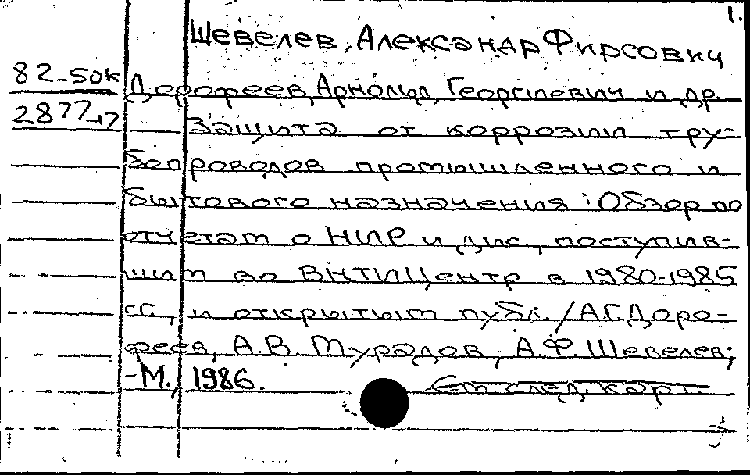 1.
Шевелев, Александр Фирсович
82-50к Дорофеев, Арнольд Георгиевич и др.
2877-17 Защита от коррозии тру-
бопроводов промышленного и
бытового назначения : Обзор по
отчетам о НИР и дис., поступив-
шим во ВНТИЦентр в 1980-1985
гг., и открытым публ. / А.Г. Доро-
феев, А.В. Мурадов, А.Ф. Шевелев;
-М., 1986. См след. карт.